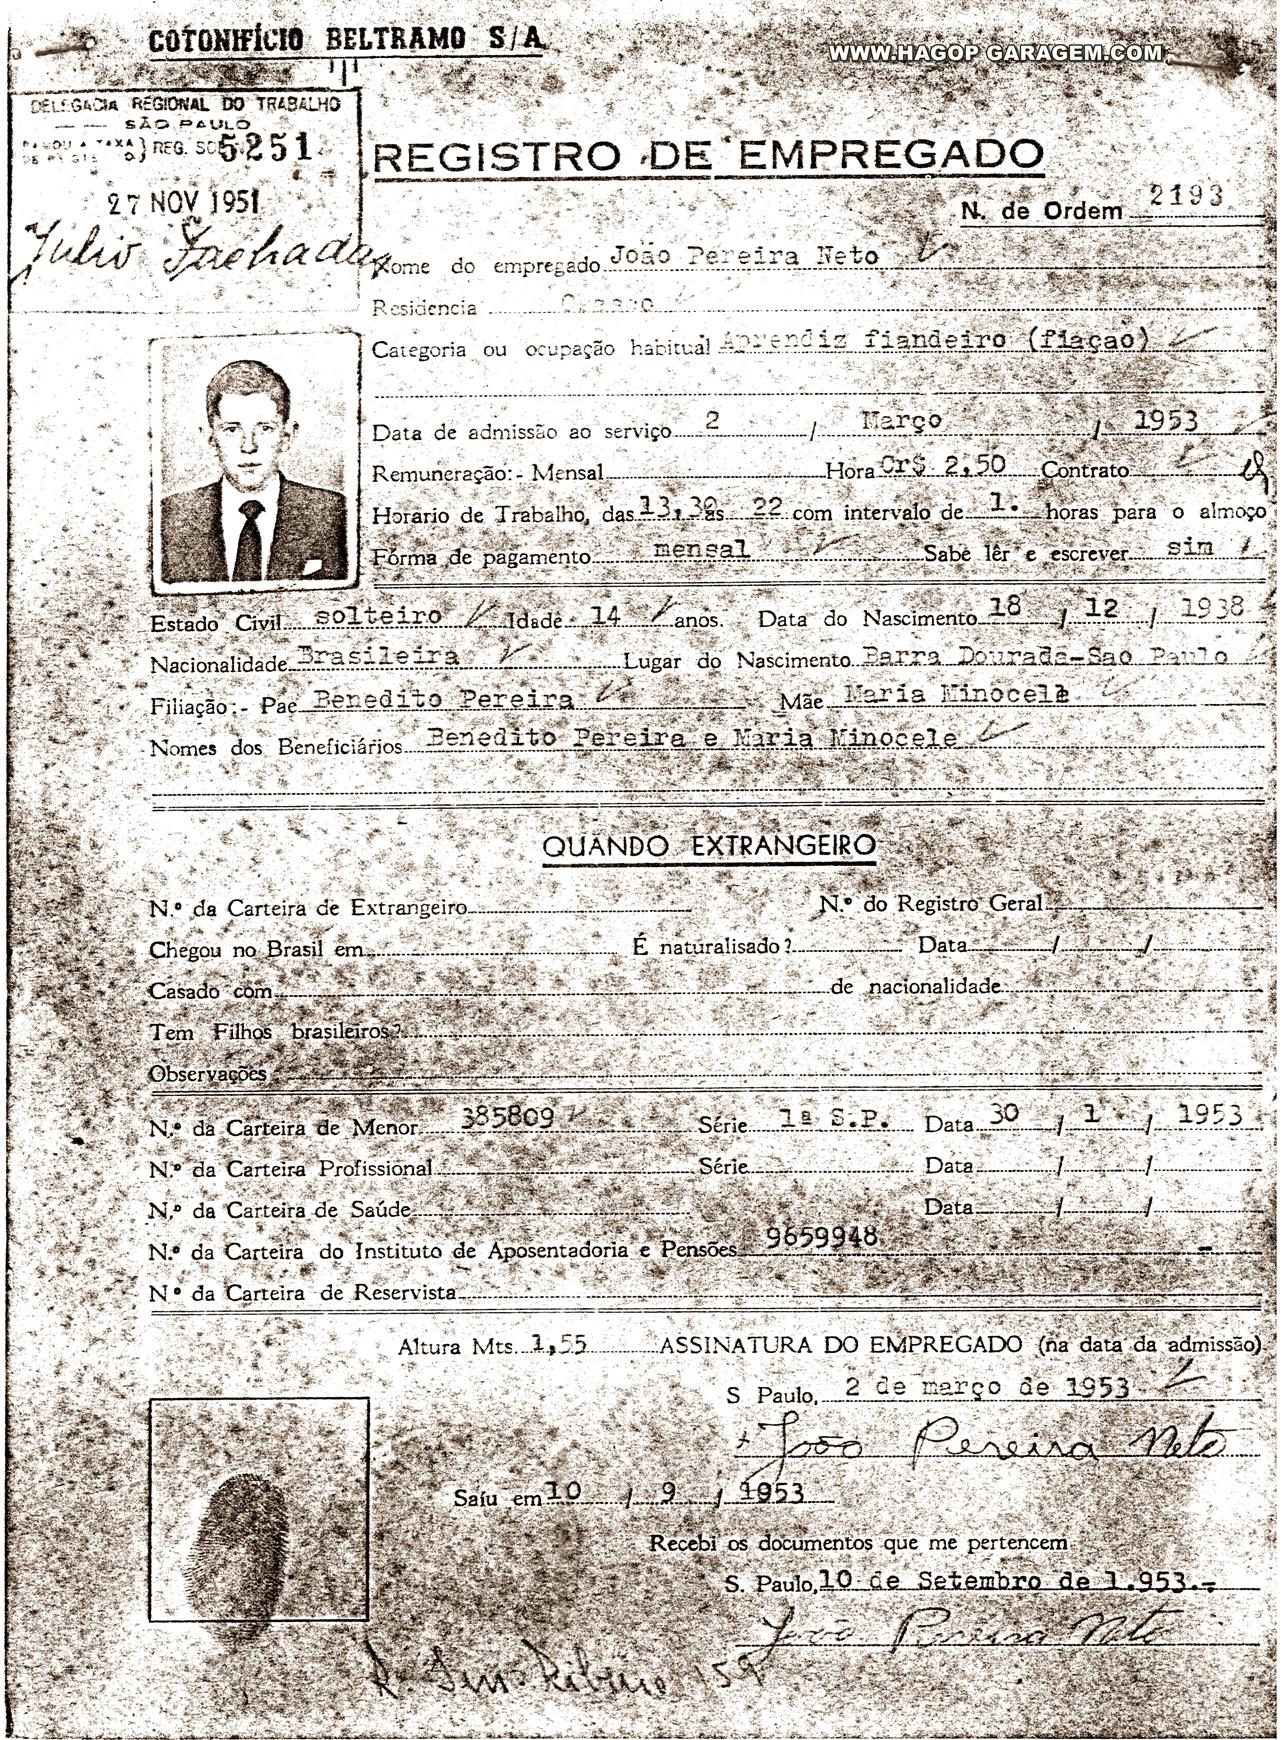 COTONIFÍCIO BELTRAMO S/A
WWW.HAGOP GARAGEM.COM
DELEGACIA REGIONAL DO TRABALHO
SÃO PAULO
REG. SOB 5251
27 NOV 1951
Julio Fachadas
REGISTRO DE EMPREGADO
N. de Ordem 2193
Nome do empregado João Pereira Neto
Residencia
Categoria ou ocupação habitual Aprendiz fiandeiro (fiaçao)
Data de admissão ao serviço 2 / Março / 1953
Remuneração:- Mensal Hora Cr$ 2,50 Contrato
Horario de Trabalho, das 13,30 ás 22 com intervalo de 1. horas para o almoço
Fórma de pagamento mensal Sabe lêr e escrever sim
Estado Civil solteiro Idade 14 anos. Data do Nascimento 18 / 12 / 1938
Nacionalidade Brasileira Lugar do Nascimento Barra Dourada-Sao Paulo
Filiação:- Pae Benedito Pereira Mãe Maria Minocele
Nomes dos Beneficiários Benedito Pereira e Maria Minocele
QUANDO EXTRANGEIRO
N.º da Carteira de Extrangeiro N.º do Registro Geral
Chegou no Brasil em É naturalisado? Data / /
Casado com de nacionalidade
Tem Filhos brasileiros?
Observações
N.º da Carteira de Menor 385809 Série 1ª S.P. Data 30 / 1 / 1953
N.º da Carteira Profissional Série Data / /
N.º da Carteira de Saúde Data / /
N.º da Carteira do Instituto de Aposentadoria e Pensões 9659948
N º da Carteira de Reservista
Altura Mts. 1,55 ASSINATURA DO EMPREGADO (na data da admissão)
S Paulo, 2 de março de 1953
João Pereira Neto
Saíu em 10 / 9 / 1953
Recebi os documentos que me pertencem
S. Paulo, 10 de Setembro de 1.953.-
João Pereira Neto
Ribeiro 159